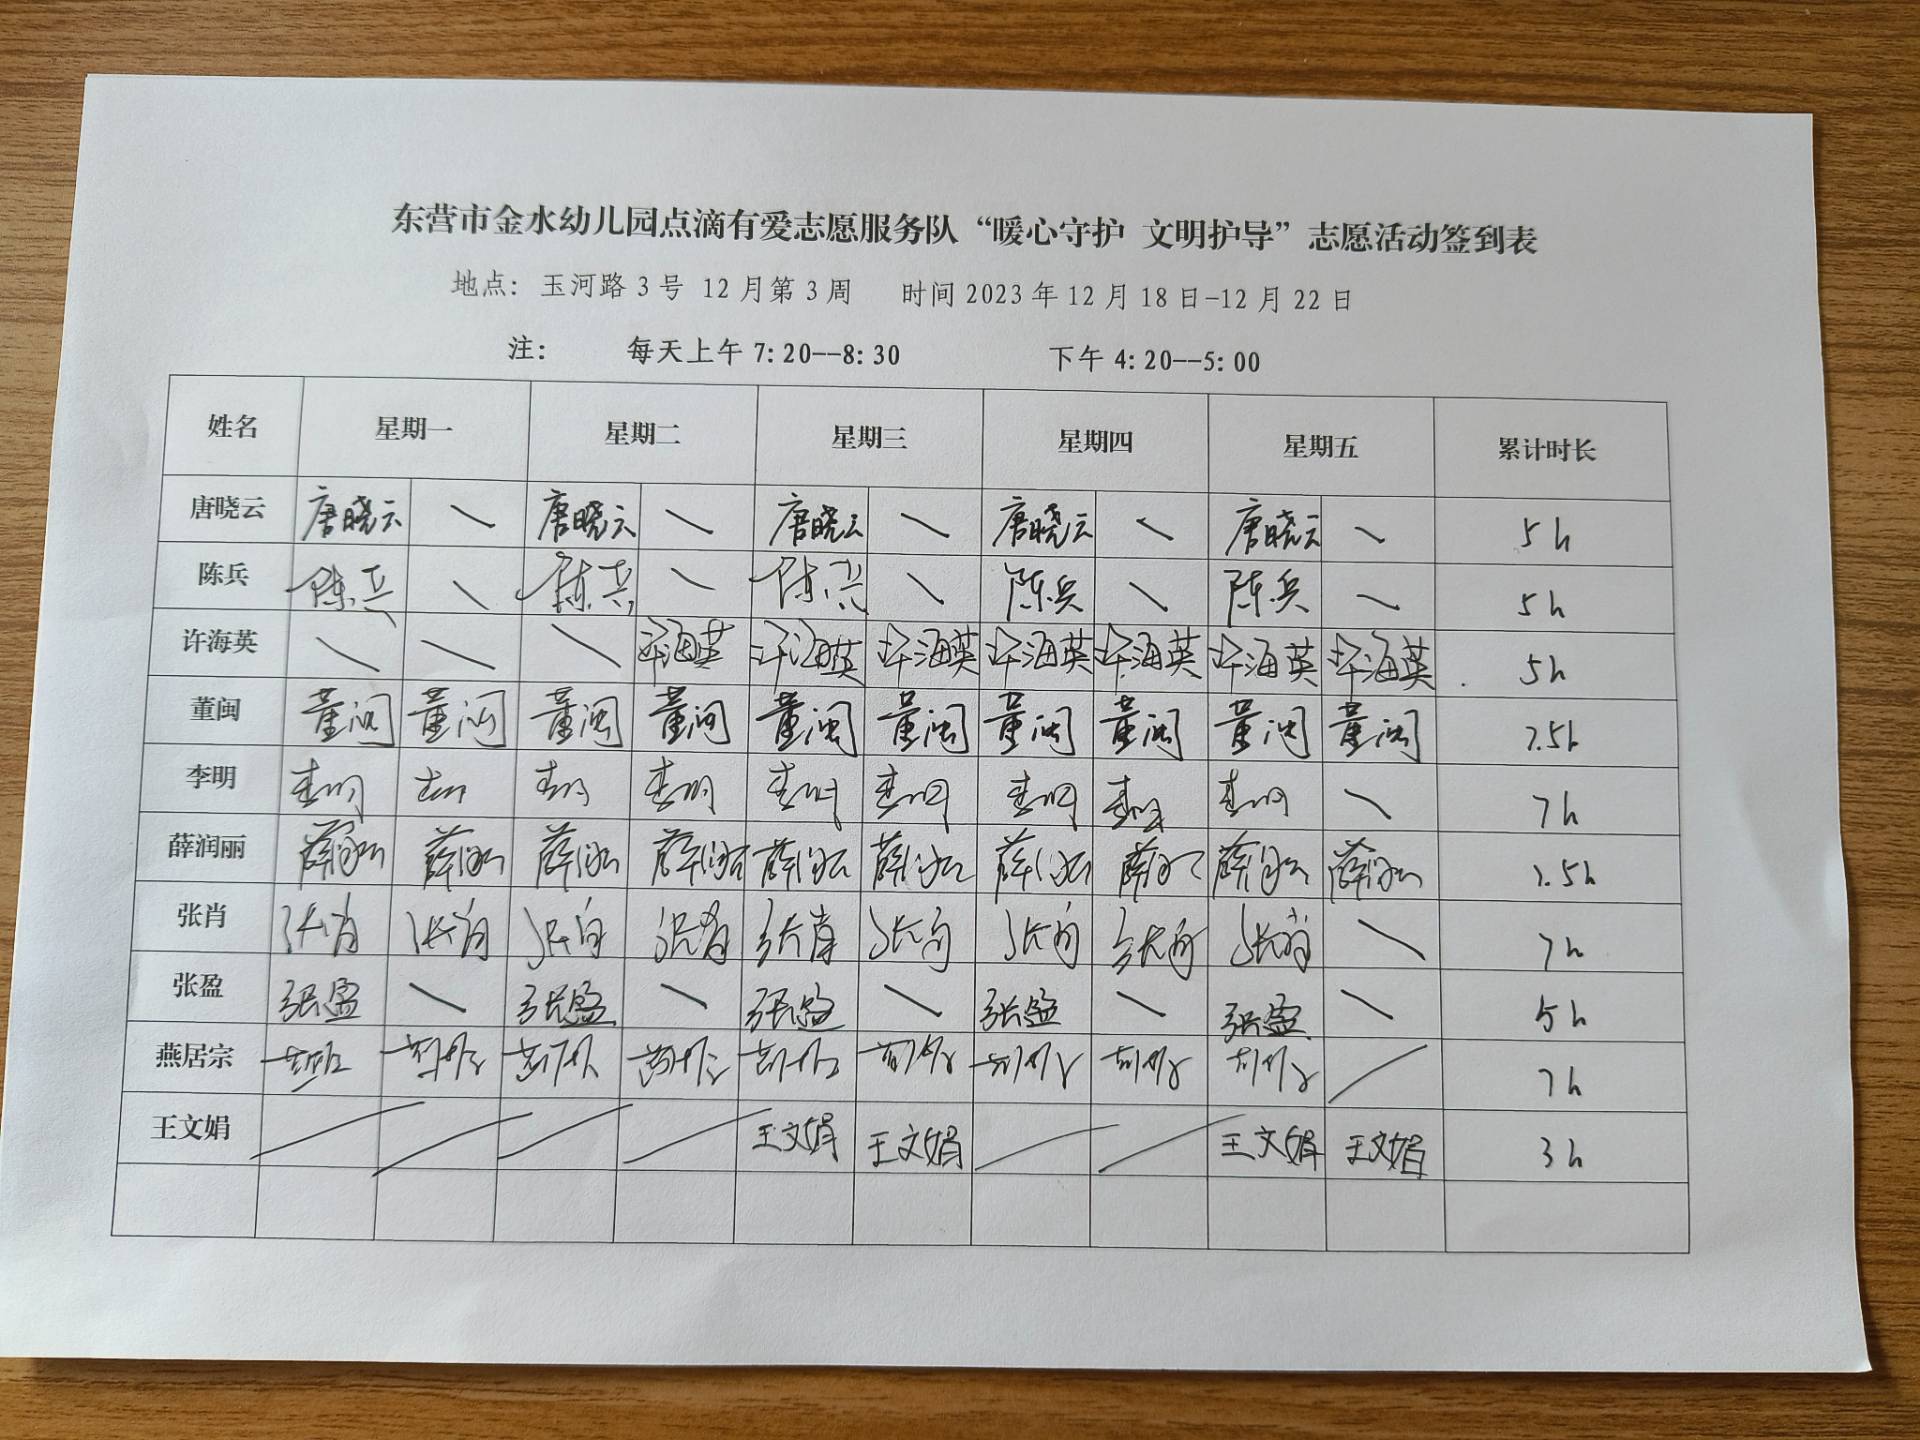 东营市金水幼儿园点滴有爱志愿服务队“暖心守护 文明护导”志愿活动签到表
地点：玉河路3号 12月第3周 时间2023年12月18日-12月22日
注： 每天上午7:20--8:30 下午4:20--5:00
姓名 星期一 星期二 星期三 星期四 星期五 累计时长
唐晓云 唐晓云 \ 唐晓云 \ 唐晓云 \ 唐晓云 \ 唐晓云 \ 5h
陈兵 陈兵 \ 陈兵 \ 陈兵 \ 陈兵 \ 陈兵 \ 5h
许海英 \ \ \ 许海英 许海英 许海英 许海英 许海英 许海英 许海英 5h
董闽 董闽 董闽 董闽 董闽 董闽 董闽 董闽 董闽 董闽 董闽 7.5h
李明 李明 李明 李明 李明 李明 李明 李明 李明 李明 \ 7h
薛润丽 薛润丽 薛润丽 薛润丽 薛润丽 薛润丽 薛润丽 薛润丽 薛润丽 薛润丽 薛润丽 7.5h
张肖 张肖 张肖 张肖 张肖 张肖 张肖 张肖 张肖 张肖 \ 7h
张盈 张盈 \ 张盈 \ 张盈 \ 张盈 \ 张盈 \ 5h
燕居宗 / 7h
王文娟 / / / / 王文娟 王文娟 / / 王文娟 王文娟 3h